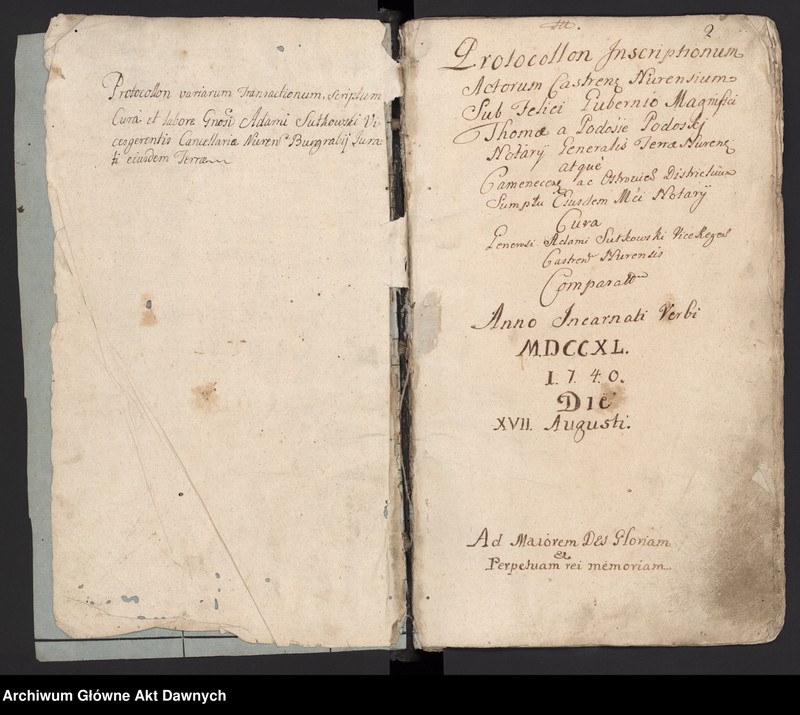 Protocollon variarum Transactionum, scriptum
Cura et labore Gnosi Adami Sutkowski Vi
cesgerentis Cancellariæ Nuren Burgrabij Jura
ti eiusdem Terræ
2
Protocollon Inscriptionum
Actorum Castren Nurensium
Sub Felici Gubernio Magnifici
Thomæ a Podosie Podoskj
Notarÿ Generalis Terræ Nuren
atquè
Camenecen ac Ostrovien Districtuum
Sumptu Eiusdem Mci Notarÿ
Cura
Generosi Adami Sutkowski Vice Regen
Castren Nurensis
Comparatt
Anno Incarnati Verbi
MDCCXL.
1. 7. 4. 0.
DIE
XVII. Augusti.
Ad Maiorem DEI Gloriam
et
Perpetuam rei memoriam
Archiwum Główne Akt Dawnych